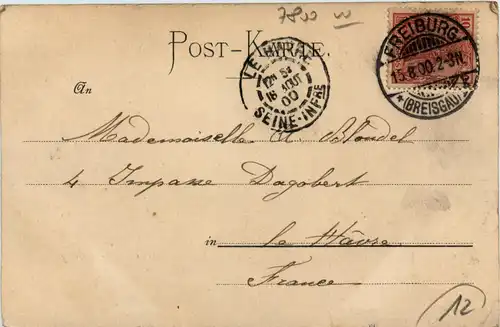 7800 w
POST-KARTE.
10
FREIBURG
15.8.00.2-3N.
* (BREISGAU) *
LE HAVRE
16 AOUT
00
SEINE-INFRE
An
Mademoiselle A. Blondel
4 Impasse Dagobert
in le Hâvre
France
12